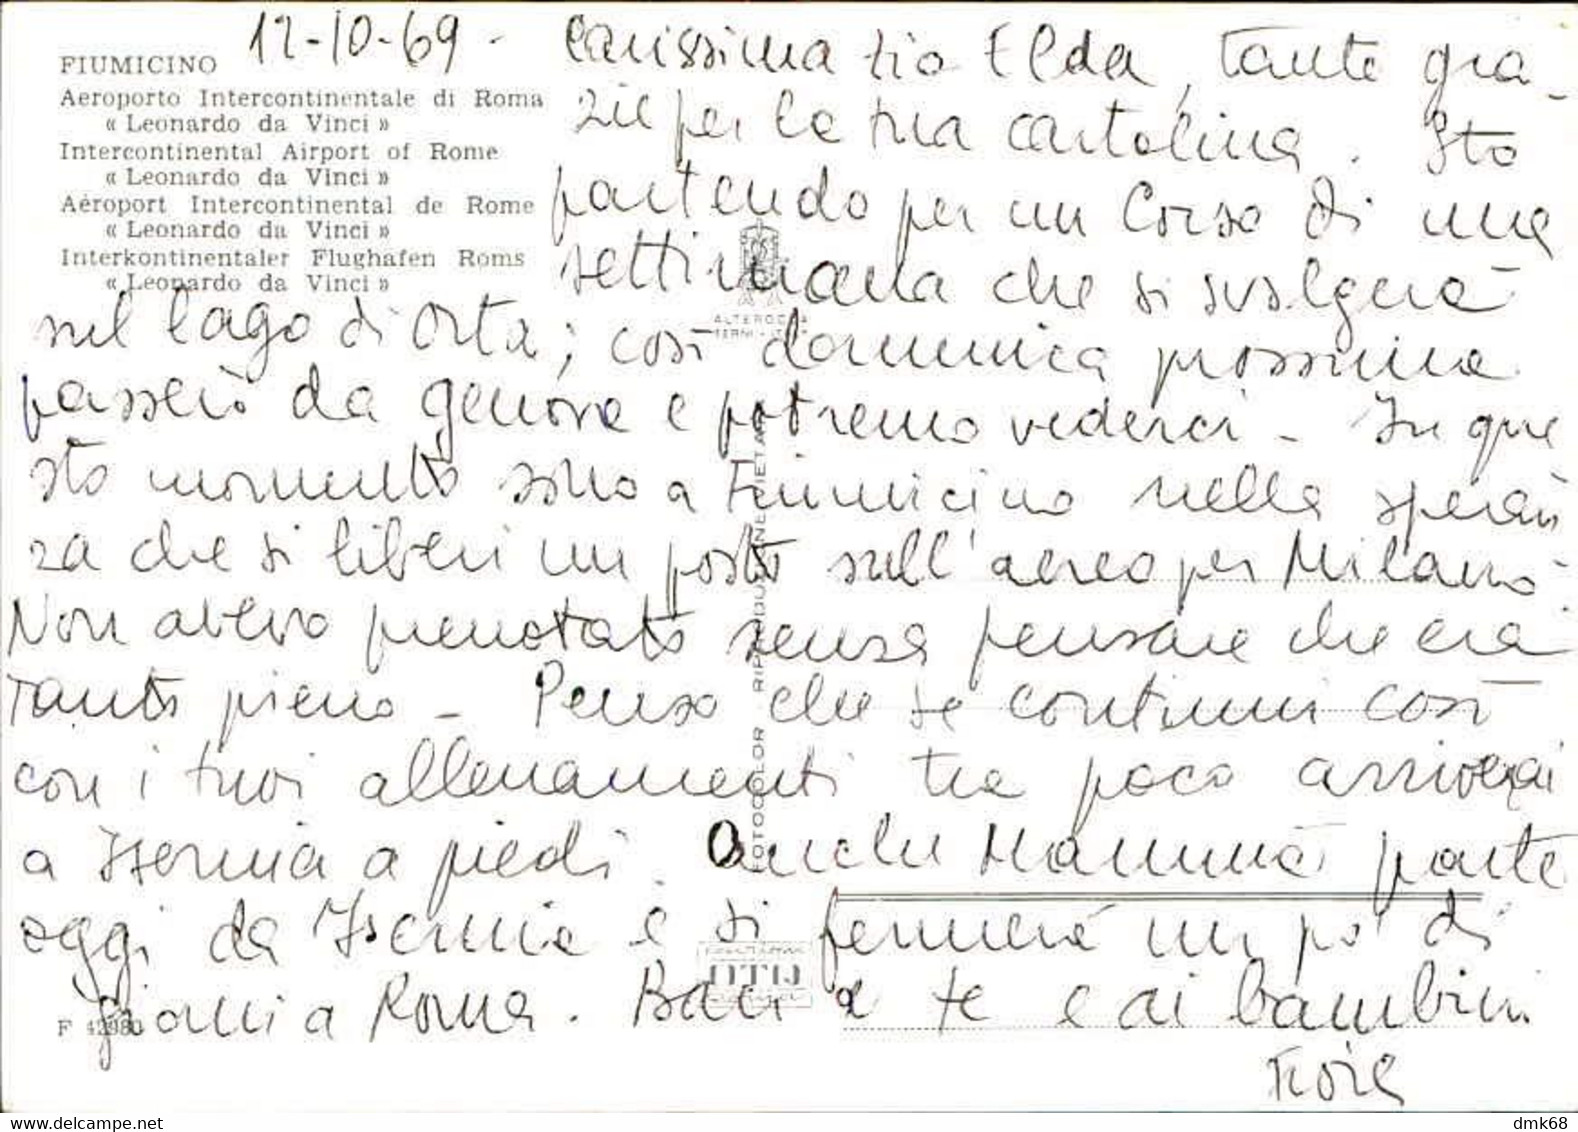 12-10-69 -
FIUMICINO
Aeroporto Intercontinentale di Roma
« Leonardo da Vinci »
Intercontinental Airport of Rome
« Leonardo da Vinci »
Aéroport Intercontinental de Rome
« Leonardo da Vinci »
Interkontinentaler Flughafen Roms
« Leonardo da Vinci »
Carissima zia Elda, tante gra-
zie per la tua cartolina. Sto
partendo per un Corso di una
settimana che si svolgerà
sul lago di Orta; così domenica prossima
passerò da Genova e potremo vederci - In que
sto momento sono a Fiumicino nella speran
za che si liberi un posto sull'aereo per Milano -
Non avevo prenotato senza pensare che era
tanto pieno - Penso che se continui così
con i tuoi allenamenti tra poco arriverai
a Isernia a piedi. Anche Mamma parte
oggi da Isernia e si fermerà un po' di
giorni a Roma. Baci a te e ai bambini.
ALTEROCCA
TERNI
FOTOCOLOR - RIPRODUZIONE VIETATA
F 42980
dmk68